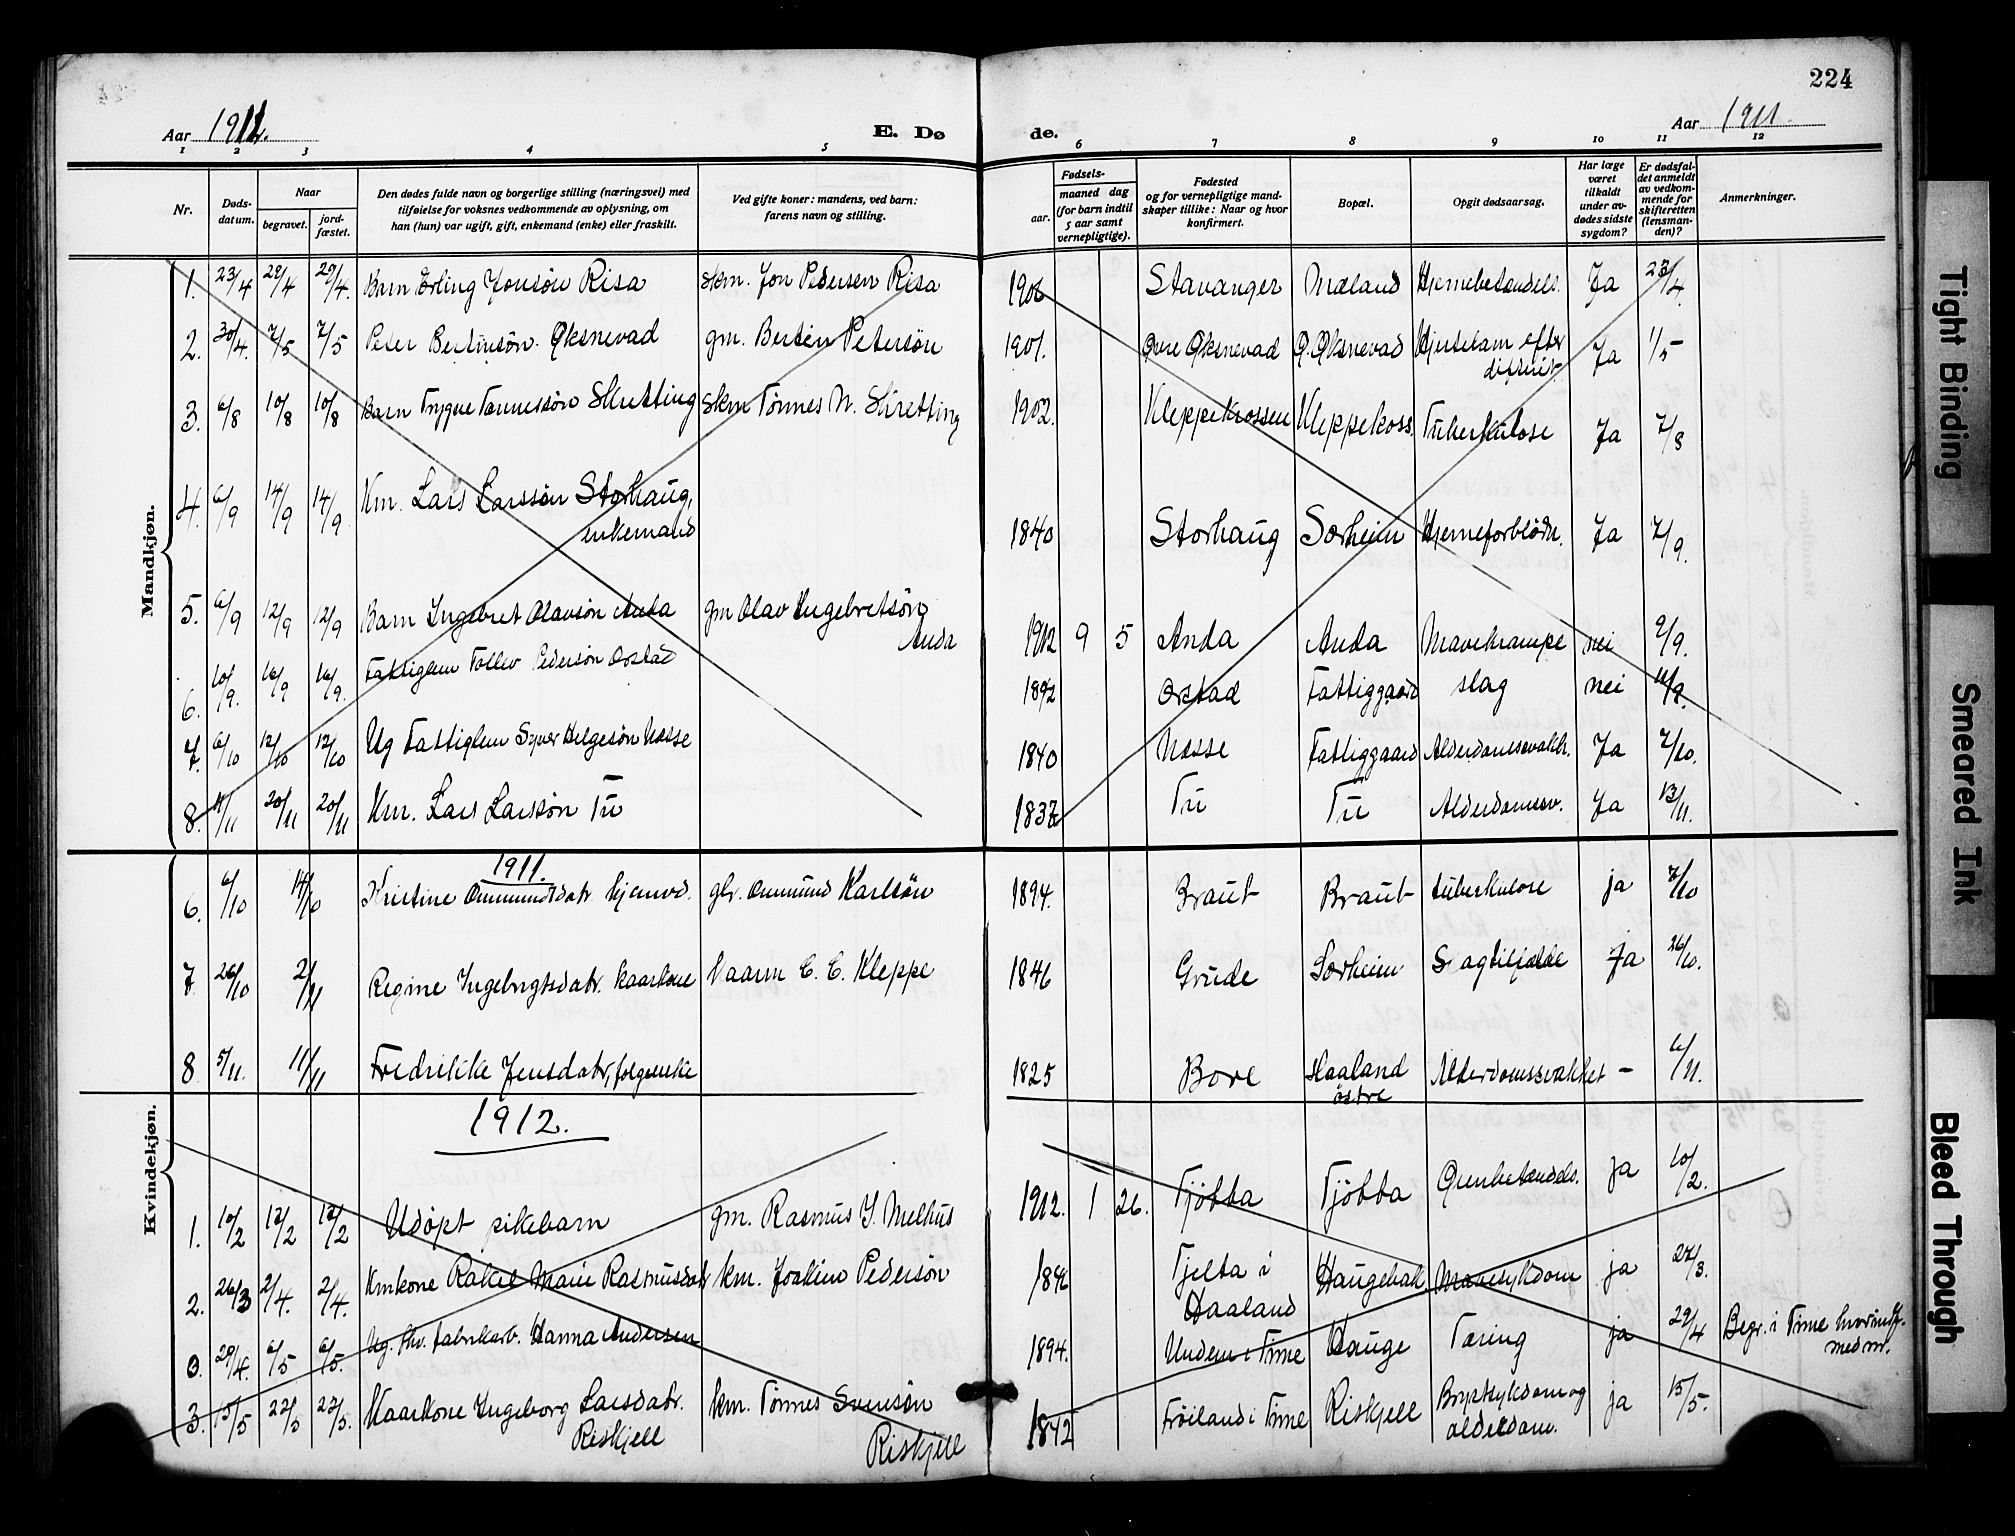 224
Aar 1911.
E. Døde.
Aar 1911.
1 2 3 4 5 6 7 8 9 10 11 12
Nr.
Døds-datum.
Naar
begravet.
jord-fæstet.
Den dødes fulde navn og borgerlige stilling (næringsvei) med
tilføielse for voksnes vedkommende av oplysning, om
han (hun) var ugift, gift, enkemand (enke) eller fraskilt.
Ved gifte koner: mandens, ved barn:
farens navn og stilling.
Fødsels-
aar.
maaned dag
(for barn indtil
5 aar samt
vernepligtige).
Fødested
og for vernepligtige mand-
skaper tillike: Naar og hvor
konfirmert.
Bopæl.
Opgit dødsaarsag.
Har læge
været
tilkaldt
under av-
dødes sidste
sygdom?
Er dødsfal-
det anmeldt
av vedkom-
mende for
skifteretten
(lensman-
den)?
Anmerkninger.
Mandkjøn.
1. 23/4 29/4 29/4. Barn Erling Jonsøn Risa Skm. Jon Pedersen Risa 1906 Stavanger Mæland Hjernebetændels. Ja 23/4.
2. 30/4. 7/5 7/5 Peter Bertinsøn Øksnevad gm. Bertin Petersøn 1901. Øvre Øksnevad Ø. Øksnevad Hjertelam efter difterit. Ja 1/5
3. 6/8 10/8 10/8 Barn Trygve Tønnessøn Skretting Skm Tønnes N. Skretting 1902. Kleppekrossen Kleppekross Tuberkulose Ja 7/8
4. 6/9 14/9 14/9. Km. Lars Larssøn Storhaug, enkemand 1840 Storhaug Sørheim Hjerneforblødn. Ja 7/9.
5. 6/9 12/9 12/9 Barn Ingebret Olavsøn Anda gm Olav Ingebretsøn Anda 1912 9 5 Anda Anda Mavekrampe nei 9/9.
6. 10/9. 16/9 16/9. Fattiglem Tollev Pedersøn Orstad 1892 Orstad Fattiggaard slag nei 11/9.
7. 6/10 12/10 12/10 Ug Fattiglem Syver Helgesøn Næsse 1840 Næsse Fattiggaard Alderdomssvakh. Ja 7/10.
8. 11/11 20/11 20/11 Km. Lars Larssøn Tu 1837 Tu Tu Alderdomssv. Ja 13/11.
Kvindekjøn.
1911.
6. 6/10 14/10 Kristine Ommundsdatr. hjemvd. gbr. Ommund Karlsøn 1894. Braut Braut tuberkulose ja 7/10
7 26/10 2/11 Regine Ingebrigtsdatr. kaarkone Kaarm C. C. Kleppe 1846 Grude Sørheim Slagtilfælde Ja 26/10.
8 5/11. 11/11 Fredrikke Jensdatr, folgeenke 1825 Bore Haaland østre Alderdomssvakhet - 6/11.
1912.
1. 10/2 12/2 12/2 Udøpt pikebarn gm. Rasmus I. Melhus 1912. 1 26. Tjøtta Tjøtta Ørenbetændels. ja 10/2.
2. 26/3 2/4. 2/4. Kmkone Rakel Marie Rasmusdatr km. Joakim Pedersøn 1846 Tjelta i Haaland Haugebak. Mavesykdom ja 27/3.
0. 29/4. 6/5 6/5. Ug. fhv. fabrikarb. Hanna Andersen 1894. Undem i Time Hauge Tæring ja 29/4 Begr. i Time hvor indf. med nr.
3. 15/5 22/5 22/5. Kaarkone Ingeborg Larsdatr. Riskjell km. Tønnes Svensøn Riskjell 1842 Frøiland i Time Riskjell Brystsykdom og alderdom. ja 15/5.
Tight Binding
Smeared Ink
Bleed Through